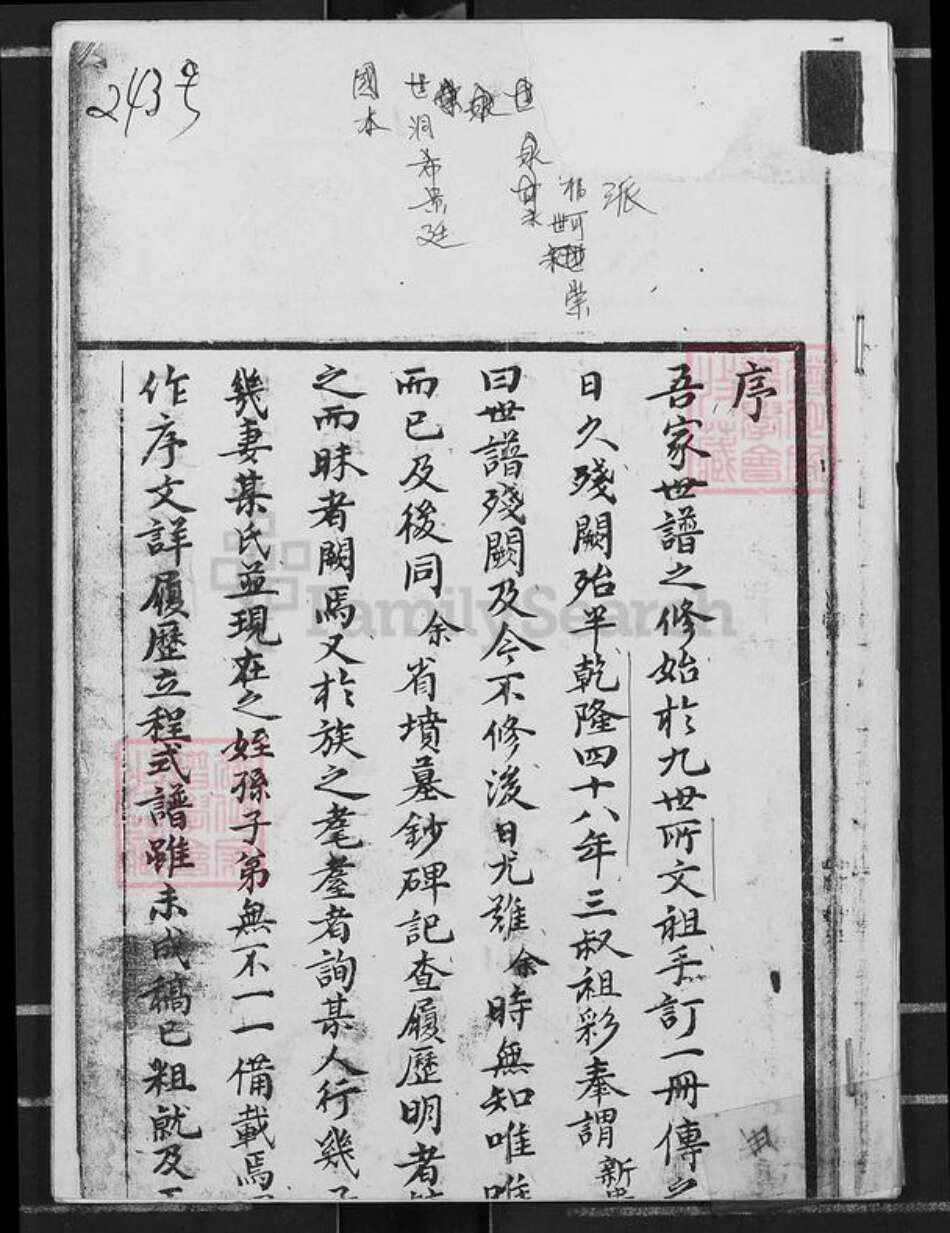 243号
派
福可
世
榮
世
泉
世洞希景廷
國本
序
吾家世譜之修始於九世所文祖手訂一冊傳之
日久殘闕殆半乾隆四十八年三叔祖彩奉謂新
曰世譜殘闕及今不修後日尤難余時無知唯唯
而已及後同余省墳墓鈔碑記查履歷明者
之而昧者闕焉又於族之耄耋者詢某人行幾
幾妻某氏並現在之姪孫子弟無不一一備載焉
作序文詳履歷立程式譜雖未成稿已粗就及
FamilySearch